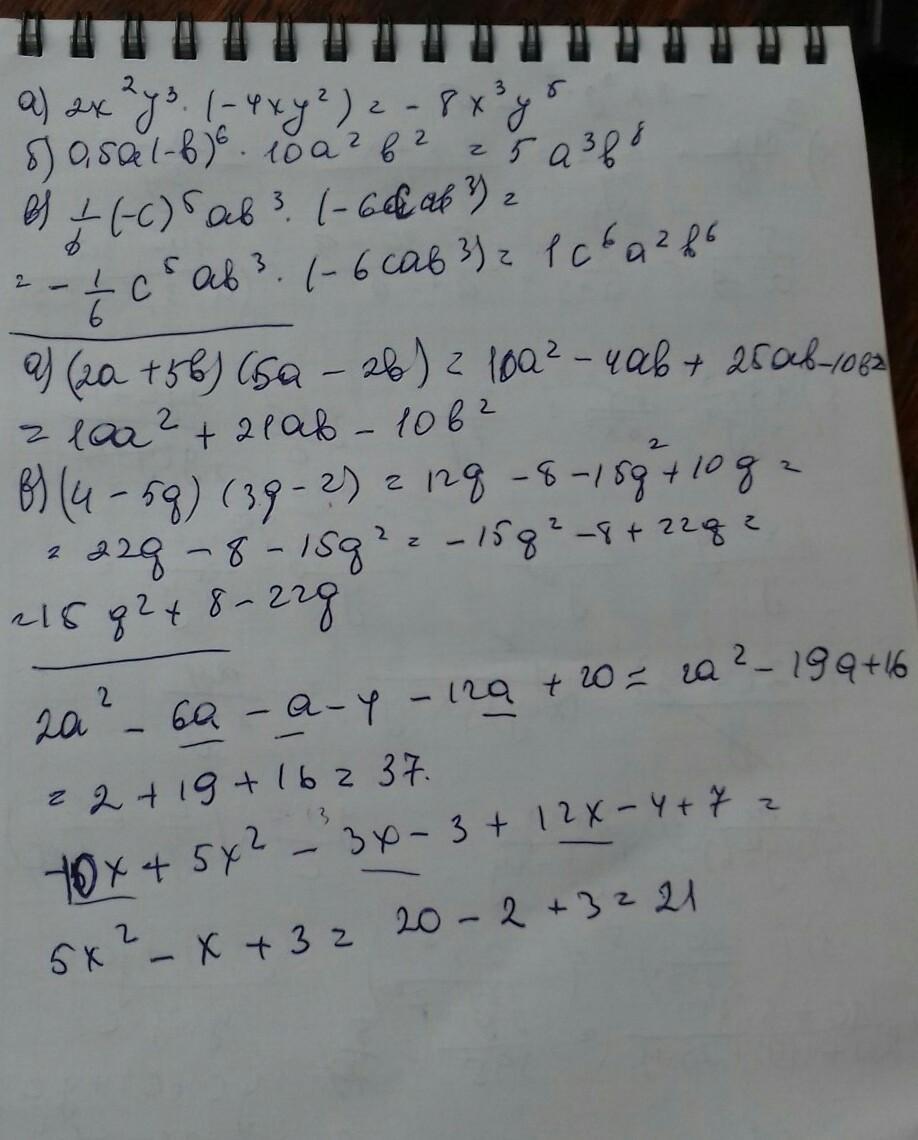 а) 2x²y³ · (-4xy²) = - 8x³y⁵
б) 0,5a(-b)⁶ · 10a² b² = 5 a³b⁸
в) 1/6 (-c)⁵ ab³ · (-6cab³) =
= - 1/6 c⁵ ab³ · (-6cab³) = 1c⁶a²b⁶
а) (2a + 5b) (5a - 2b) = 10a² - 4ab + 25ab - 10b²
= 10a² + 21ab - 10b²
в) (4 - 5q) (3q - 2) = 12q - 8 - 15q² + 10q =
= 22q - 8 - 15q² = -15q² - 8 + 22q =
= 15 q² + 8 - 22q
2a² - 6a - a - 4 - 12a + 20 = 2a² - 19a + 16
= 2 + 19 + 16 = 37.
-10x + 5x² - 3x - 3 + 12x - 4 + 7 =
5x² - x + 3 = 20 - 2 + 3 = 21